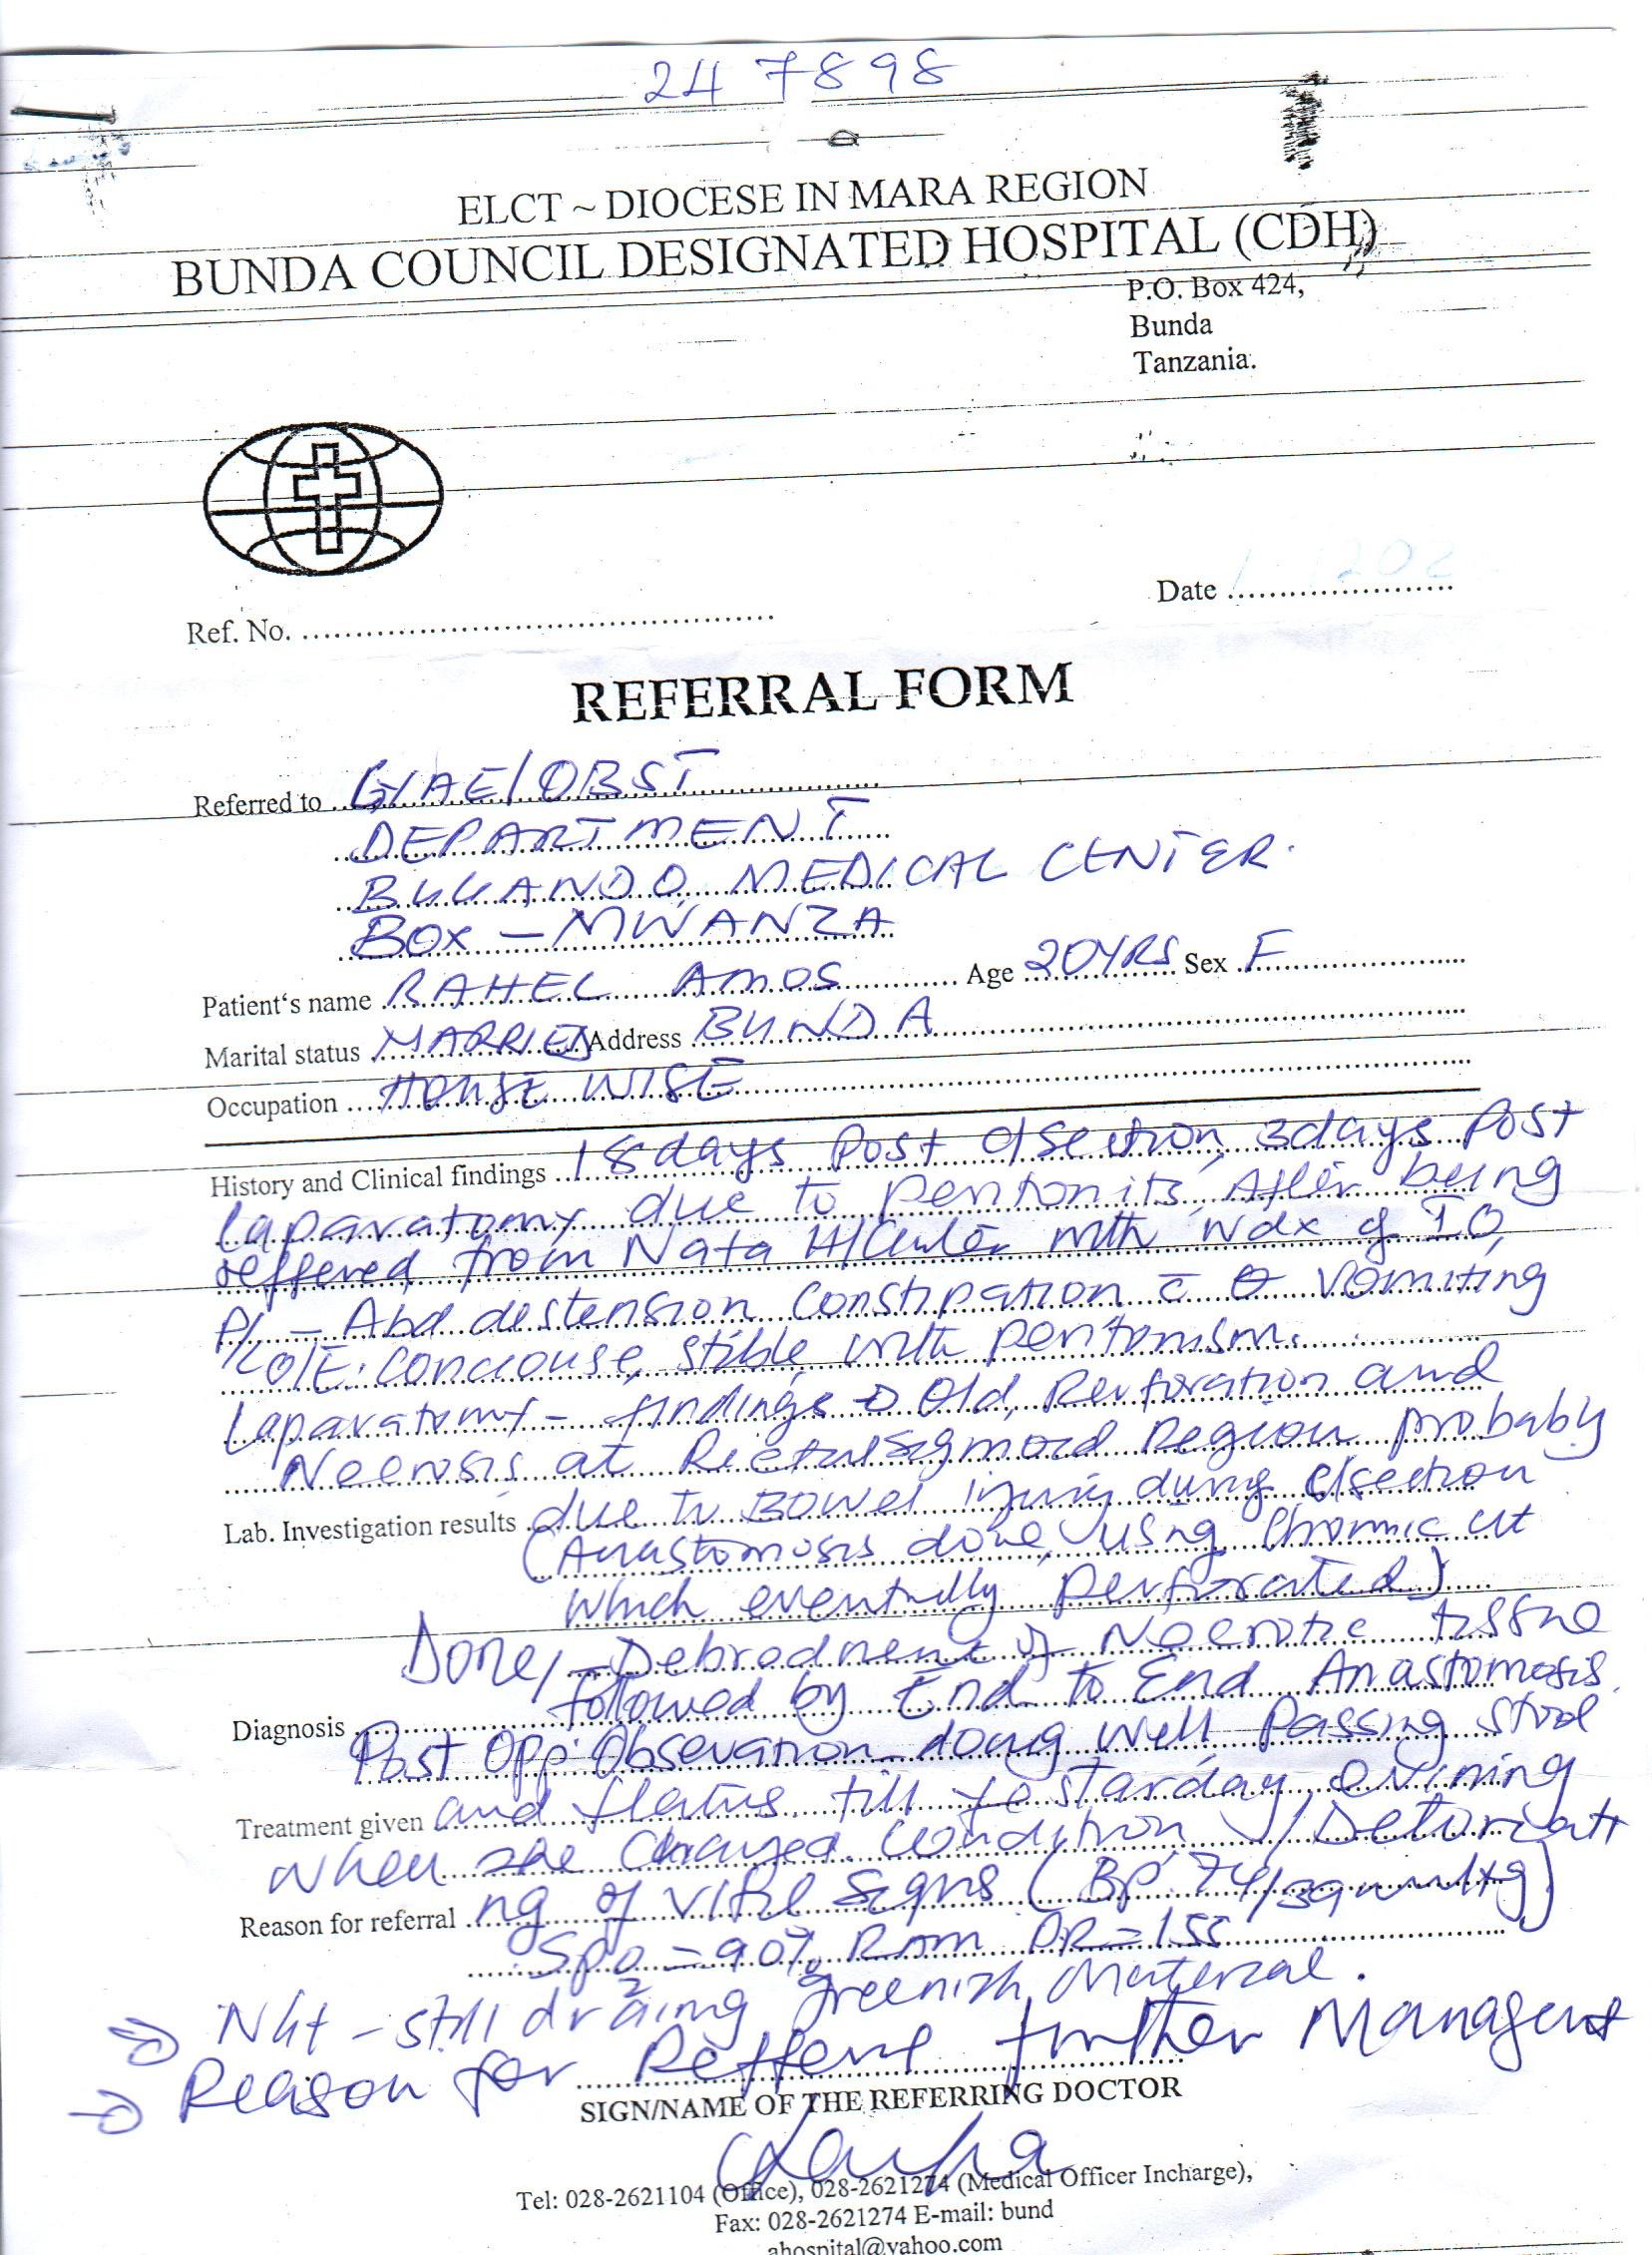 24 7898
ELCT ~ DIOCESE IN MARA REGION
BUNDA COUNCIL DESIGNATED HOSPITAL (CDH)
P.O. Box 424,
Bunda
Tanzania.
Date
Ref. No.
REFERRAL FORM
Referred to G/AE/OBST
DEPARTMENT
BUGANDO MEDICAL CENTER.
BOX – MWANZA
Patient's name RAHEL AMOS Age 20YRS Sex F
Marital status MARRIED Address BUNDA
Occupation HOUSE WIFE
History and Clinical findings 18days Post c/section, 3days Post
Laparatomy due to peritonits, After being
reffered from Nata H/Center with wdx of IO,
P/ – Abd destension Constipation c̄ Vomiting
O/E: conciouse, stible with peritonism.
Laparatomy – findings → Old, Perforation and
Necrosis at Rectalsigmoid Region probaby
Lab. Investigation results due to Bowel injury during c/section
(Anastomosis done, using Chromic cut
which eventually perforated)
Done, – Debrodment of Necrotic tissue
followed by End to End Anastomosis.
Diagnosis
Post Opp: Obsevation doing well, Passing stool
Treatment given and flatus till yestarday evining
when she changed condition / Detoriatt
Reason for referral ng of vital signs (BP: 74/39mmHg)
Spo2 = 90% RAM PR = 155
⇒ NGt – still draing greenish Material.
⇒ Reason for Refferal further Managent
SIGN/NAME OF THE REFERRING DOCTOR
Tel: 028-2621104 (Office), 028-2621274 (Medical Officer Incharge),
Fax: 028-2621274 E-mail: bund
ahospital@yahoo.com